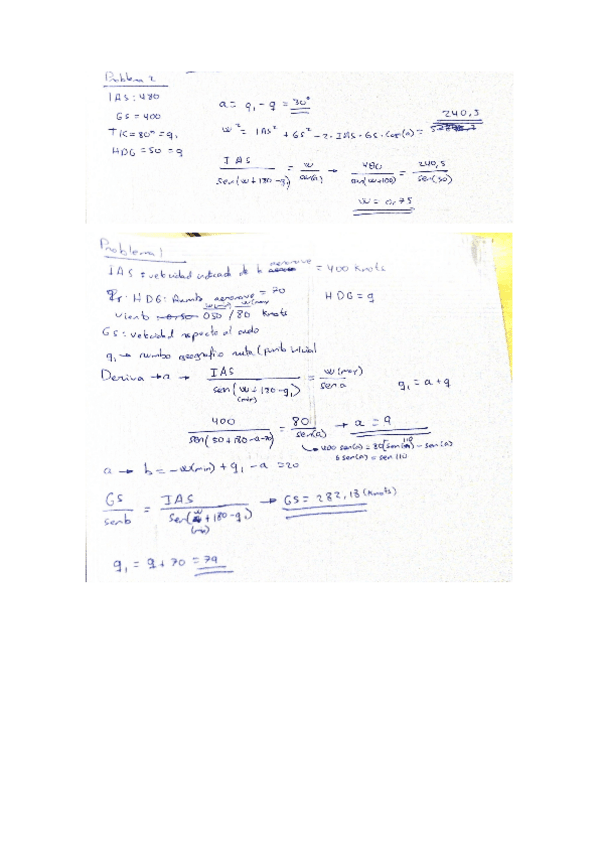 Problema 2
IAS: 480
GS = 400
TK = 80° = q₁
HDG = 50 = q
a = q₁ - q = 30°
w² = IAS² + GS² - 2 · IAS · GS · cos(a) = 240,3
IAS / sen(w + 180 - q₁) = w / sen(a) → 480 / sen(w+100) = 240,5 / sen(30)
w = 0,75
Problema 1
IAS = velocidad indicada de la aeronave = 400 Knots
HDG: Rumbo aeronave = 70
HDG = q
viento 050 / 80 Knots
GS: velocidad respecto al suelo
q₁ → rumbo geografico ruta (punto inicial
Deriva → a → IAS / sen(w + 180 - q₁) = w(mov) / sen a
q₁ = a + q
400 / sen(50 + 180 - a - 70) = 80 / sen(a) → a = 9
6 sen(a) = sen 110
a → b = -w(mov) + q₁ - a = 20
GS / sen b = IAS / sen(w + 180 - q₁) → GS = 282,13 (Knots)
q₁ = 9 + 70 = 79